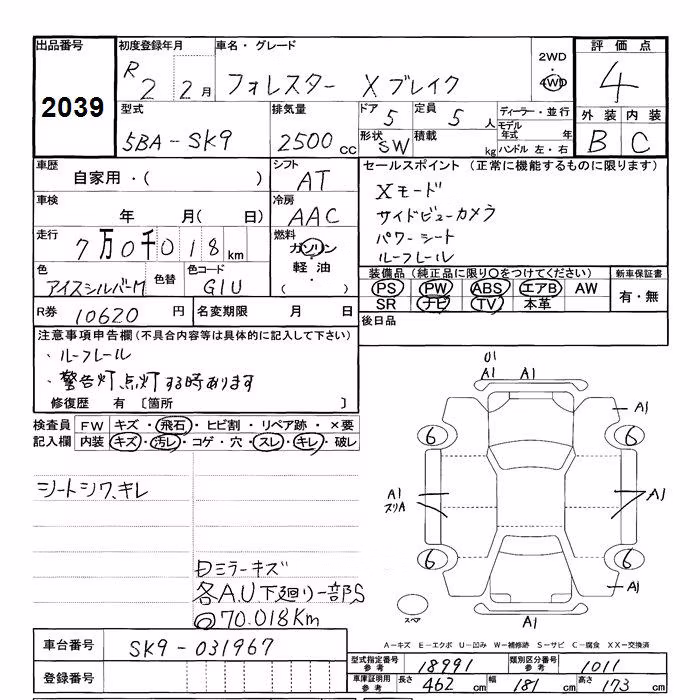 出品番号
2039
初度登録年月
R 2 2月
車名・グレード
フォレスター Xブレイク
2WD
4WD
評価点
4
外装 内装
B C
型式
5BA-SK9
排気量
2500cc
ドア 5
定員 5人
形状 SW
積載 kg
ディーラー・並行
モデル年式 年
ハンドル 左・右
車歴
自家用・( )
シフト
AT
車検
年 月( 日)
冷房
AAC
走行
7万0千018km
燃料
ガソリン
・
軽油
・
( )
色
アイスシルバーM
色替
色コード
G1U
R券 10620円
名変期限 月 日
セールスポイント (正常に機能するものに限ります)
Xモード
サイドビューカメラ
パワーシート
ルーフレール
装備品(純正品に限り○をつけてください)
PS PW ABS エアB AW
SR ナビ TV 本革
新車保証書
有・無
後日品
注意事項申告欄(不具合内容等は具体的に記入して下さい)
・ルーフレール
・警告灯点灯する時あります
修復歴 有〔箇所 〕
検査員記入欄
FW キズ・飛石・ヒビ割・リペア跡・×要
内装 キズ・汚レ・コゲ・穴・スレ・キレ・破レ
シートシワ、キレ
ミラーキズ
各A.U下廻り一部S
70.018Km
A1 A1
A1
6 6
A1
スリA
A1
6 6
A1
スペア
A1
車台番号
SK9-031967
登録番号
A-キズ E-エクボ U-凹み W-補修跡 S-サビ C-腐食 XX-交換済
型式指定番号 参考 18991
類別区分番号 参考 1011
車庫証明用 参考 長さ 462cm 幅 181cm 高さ 173cm